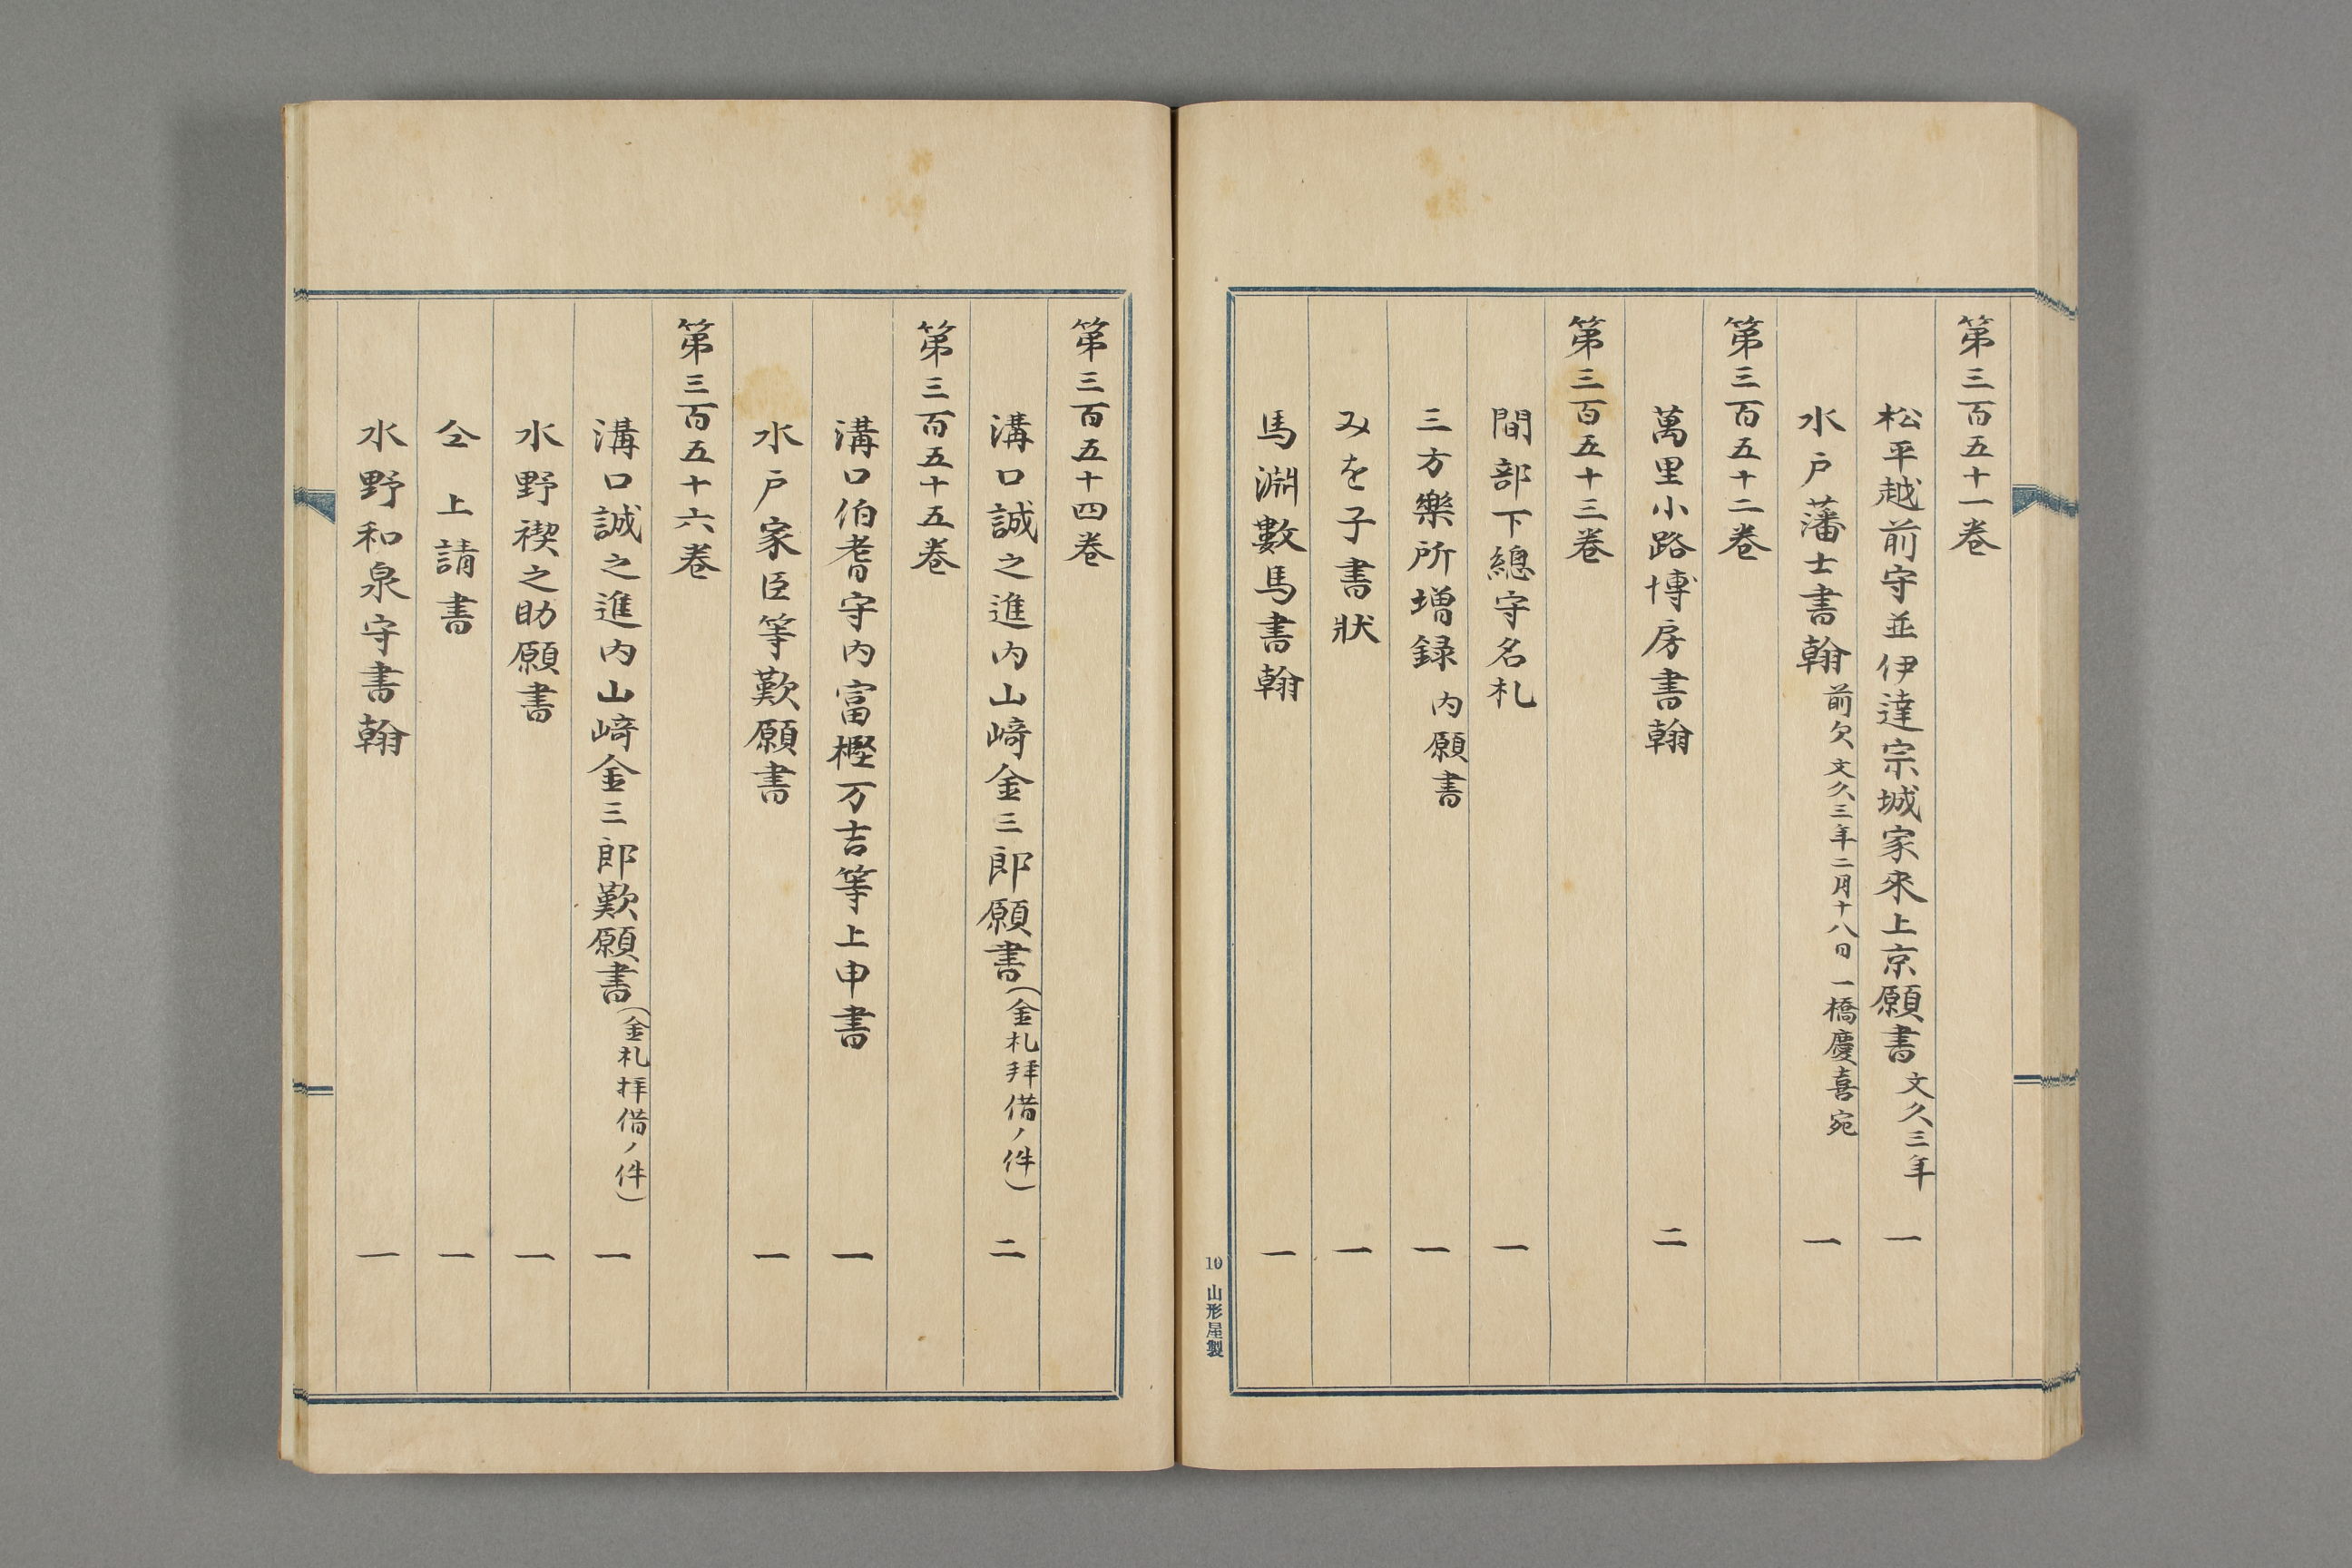 第三百五十一巻
松平越前守並伊達宗城家來上京願書 文久三年 一
水戸藩士書翰 前欠、文久三年二月十八日 一橋慶喜宛 一
第三百五十二巻
萬里小路博房書翰 二
第三百五十三巻
間部下總守名札 一
三方樂所増録内願書 一
みを子書狀 一
馬淵數馬書翰 一
10 山形屋製
第三百五十四巻
溝口誠之進内山﨑金三郎願書(金札拜借ノ件) 二
第三百五十五巻
溝口伯耆守内富樫万吉等上申書 一
水戸家臣等歎願書 一
第三百五十六巻
溝口誠之進内山﨑金三郎歎願書(金札拝借ノ件) 一
水野禊之助願書 一
仝 上請書 一
水野和泉守書翰 一